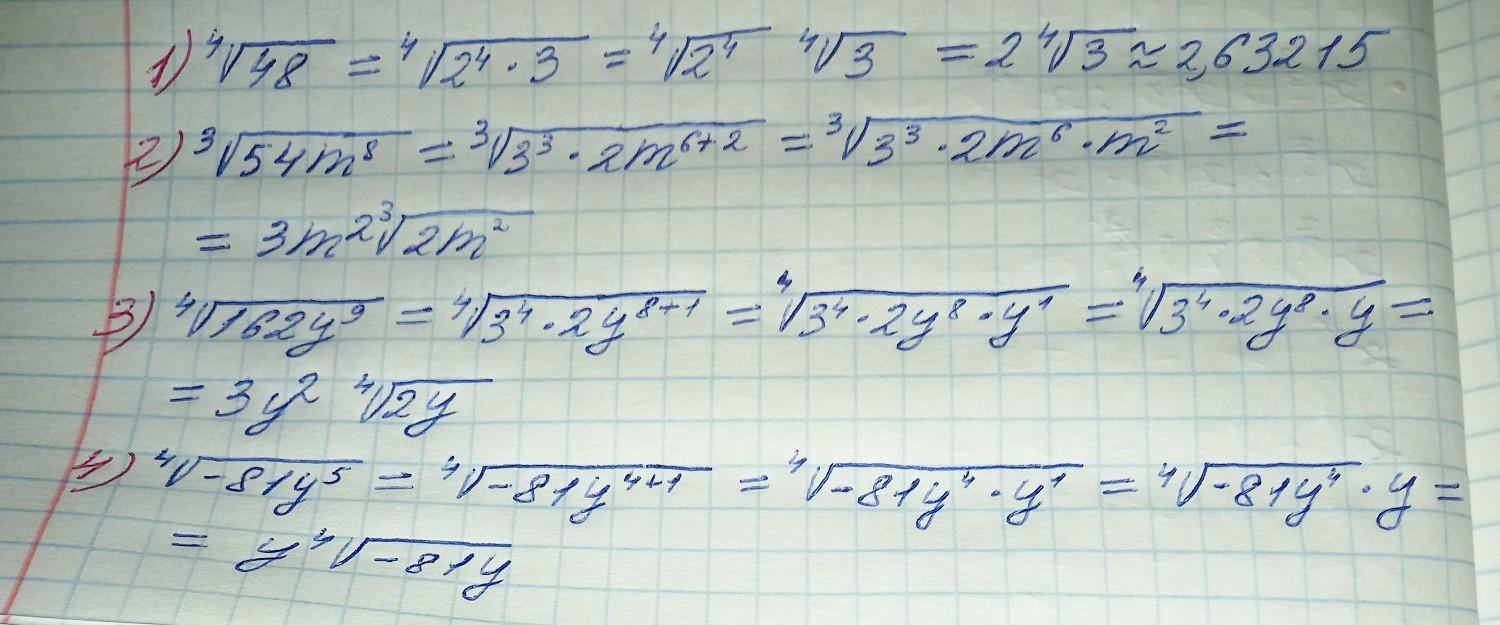 1) ⁴√48 = ⁴√2⁴·3 = ⁴√2⁴ ⁴√3 = 2 ⁴√3 ≈ 2,63215
2) ³√54m⁸ = ³√3³·2m⁶⁺² = ³√3³·2m⁶·m² =
= 3m² ³√2m²
3) ⁴√162y⁹ = ⁴√3⁴·2y⁸⁺¹ = ⁴√3⁴·2y⁸·y¹ = ⁴√3⁴·2y⁸·y =
= 3y² ⁴√2y
4) ⁴√-81y⁵ = ⁴√-81y⁴⁺¹ = ⁴√-81y⁴·y¹ = ⁴√-81y⁴·y =
= y ⁴√-81y